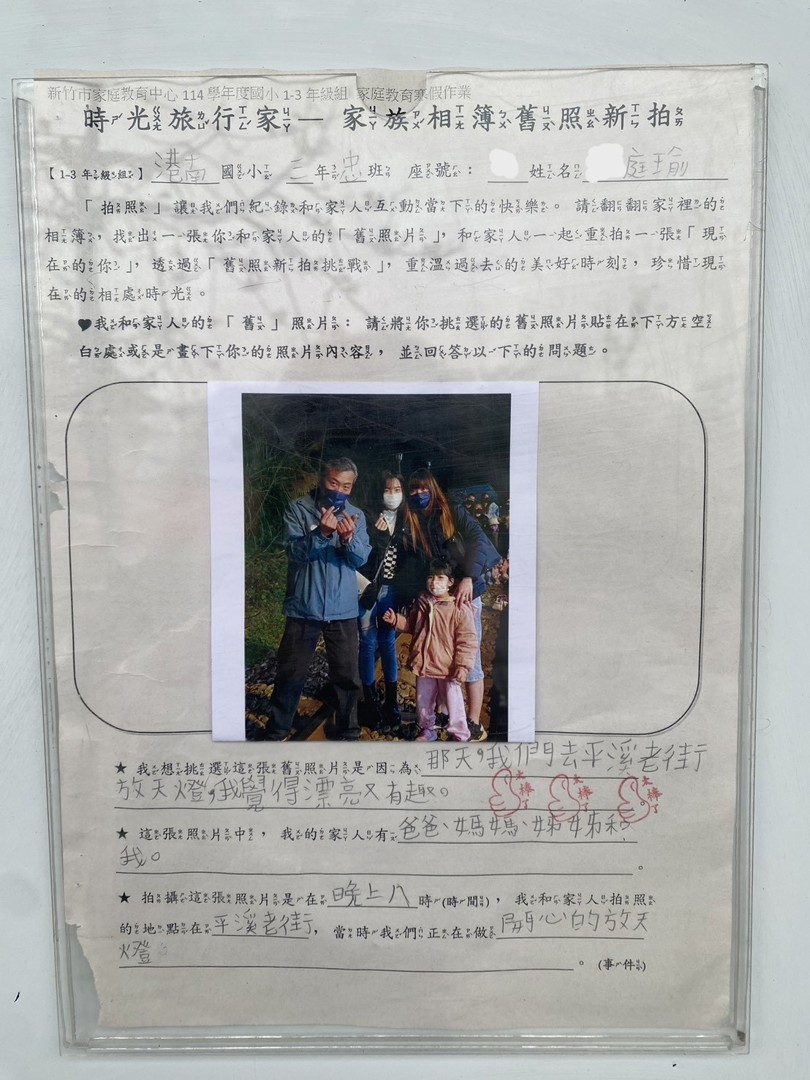 新竹市家庭教育中心 114 學年度國小 1-3 年級組 家庭教育寒假作業
時光旅行家— 家族相簿舊照新拍
【1-3 年級組】港南國小 三年忠班 座號： 姓名 庭瑜
「拍照」讓我們紀錄和家人互動當下的快樂。請翻翻家裡的
相簿，找出一張你和家人的「舊照片」，和家人一起重拍一張「現
在的你」，透過「舊照新拍挑戰」，重溫過去的美好時刻，珍惜現
在的相處時光。
♥我和家人的「舊」照片：請將你挑選的舊照片貼在下方空
白處或是畫下你的照片內容，並回答以下的問題。
★ 我想挑選這張舊照片是因為那天，我們去平溪老街
放天燈，我覺得漂亮又有趣。太棒了 太棒了 太棒了。
★ 這張照片中，我的家人有爸爸、媽媽、姊姊和
我。。
★ 拍攝這張照片是在晚上八時(時間)，我和家人拍照
的地點在平溪老街，當時我們正在做開心的放天
燈。(事件)